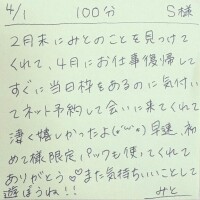 4/1 100分 S様
2月末にみとのことを見つけて
くれて、4月にお仕事復帰して
すぐに当日枠もあるのに気付い
てネット予約して会いに来てくれて
凄く嬉しかったよ(*´꒳`*)早速、初
めて様限定パックも使ってくれて
ありがとう♡♡また気持ちいいことして
遊ぼうね!! みと